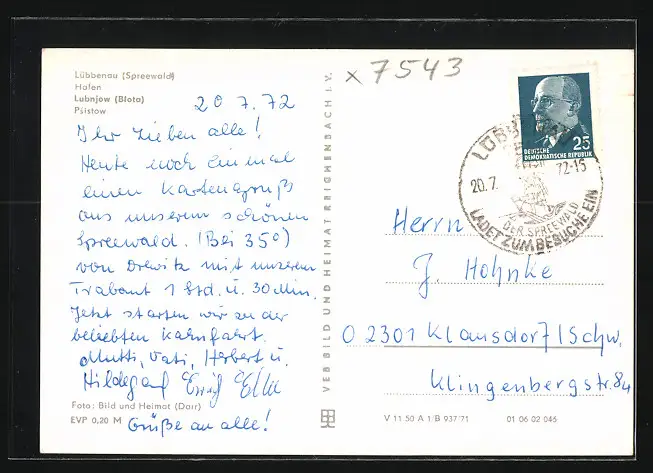 Lübbenau (Spreewald)
Hafen
Lubnjow (Blota)
Pśistow
20 7. 72
Ihr Lieben alle!
Heute noch einmal
einen Kartengruß
aus unserem schönen
Spreewald. (Bei 35°)
von Drewitz mit unserem
Trabant 1 Std. u. 30 Min.
Jetzt starten wir zu der
beliebten Kahnfahrt.
Mutti, Vati, Herbert u.
Hildegard Erich Elke
Grüße an alle!
Foto: Bild und Heimat (Darr)
EVP 0,20 M
VEB BILD UND HEIMAT REICHENBACH I. V.
x 7543
25
DEUTSCHE
DEMOKRATISCHE REPUBLIK
LÜBBENAU
20.7.72-15
DER SPREEWALD
LADET ZUM BESUCHE EIN
Herrn
J. Hohnke
O 2301 Klausdorf/Schw.
Klingenbergstr. 84
V 11 50 A 1/B 937/71
01 06 02 045